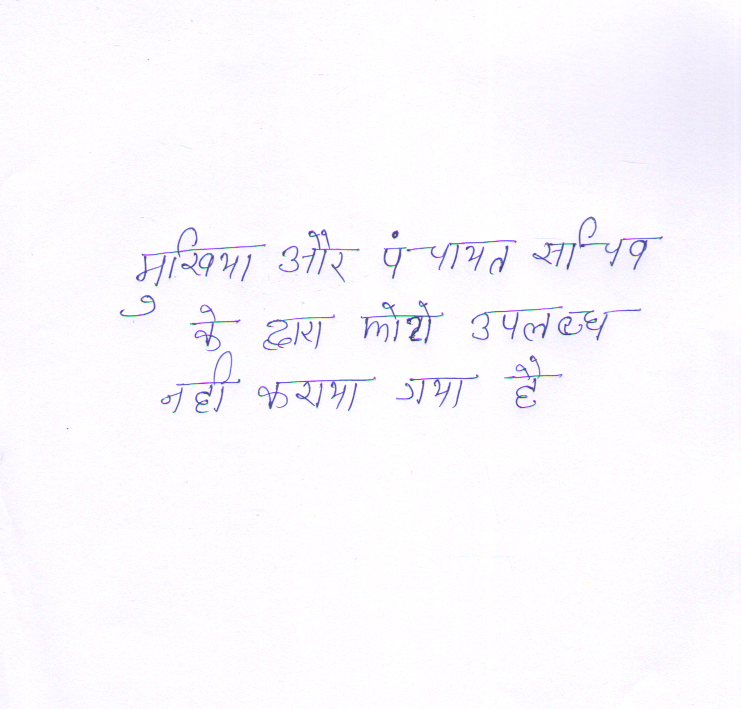 मुखिया और पंचायत सचिव
के द्वारा फोटो उपलब्ध
नही कराया गया है